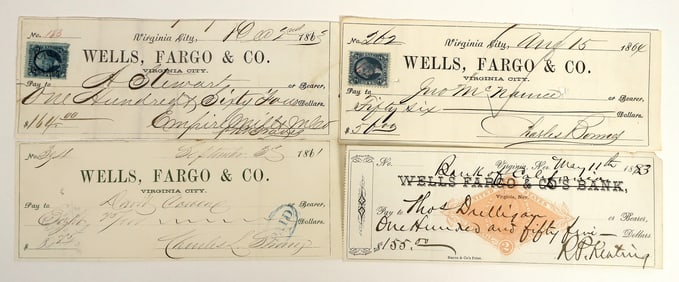 No. 183
Virginia City, Dec 2nd 1863
WELLS, FARGO & CO.
VIRGINIA CITY.
Pay to A Stewart or Bearer,
One Hundred & Sixty Four Dollars.
$164.00 Empire Mill & M Co
No. 262 Virginia City, Aug 15 1864
WELLS, FARGO & CO.
VIRGINIA CITY.
Pay to Jno McNamee or Bearer,
Fifty six Dollars.
$56.00 Charles Bonner
September 1861
WELLS, FARGO & CO.
VIRGINIA CITY.
Pay to David or Bearer,
Dollars.
PAID
Charles L. Strong
No. Virginia, Nev. May 11th 1873
Bank of
WELLS FARGO & CO'S BANK,
Virginia, Nev.
Pay to Thos Dulligan or Bearer,
One Hundred and fifty five — Dollars
$155.00 R.P. Keating